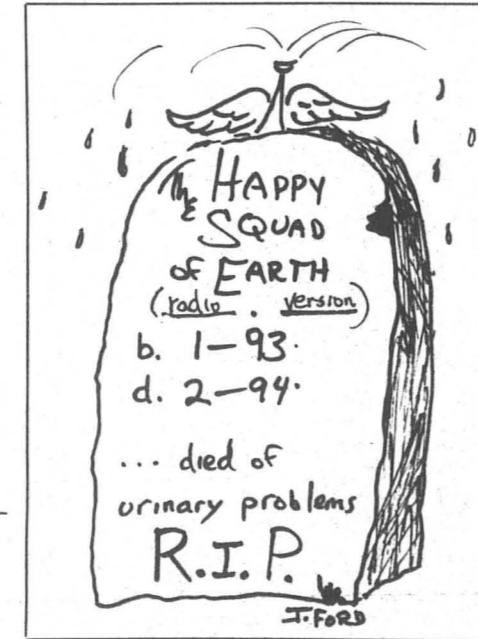 The HAPPY
SQUAD
of EARTH
(radio . version)
b. 1-93.
d. 2-94.
... died of
urinary problems
R.I.P.
J. FORD